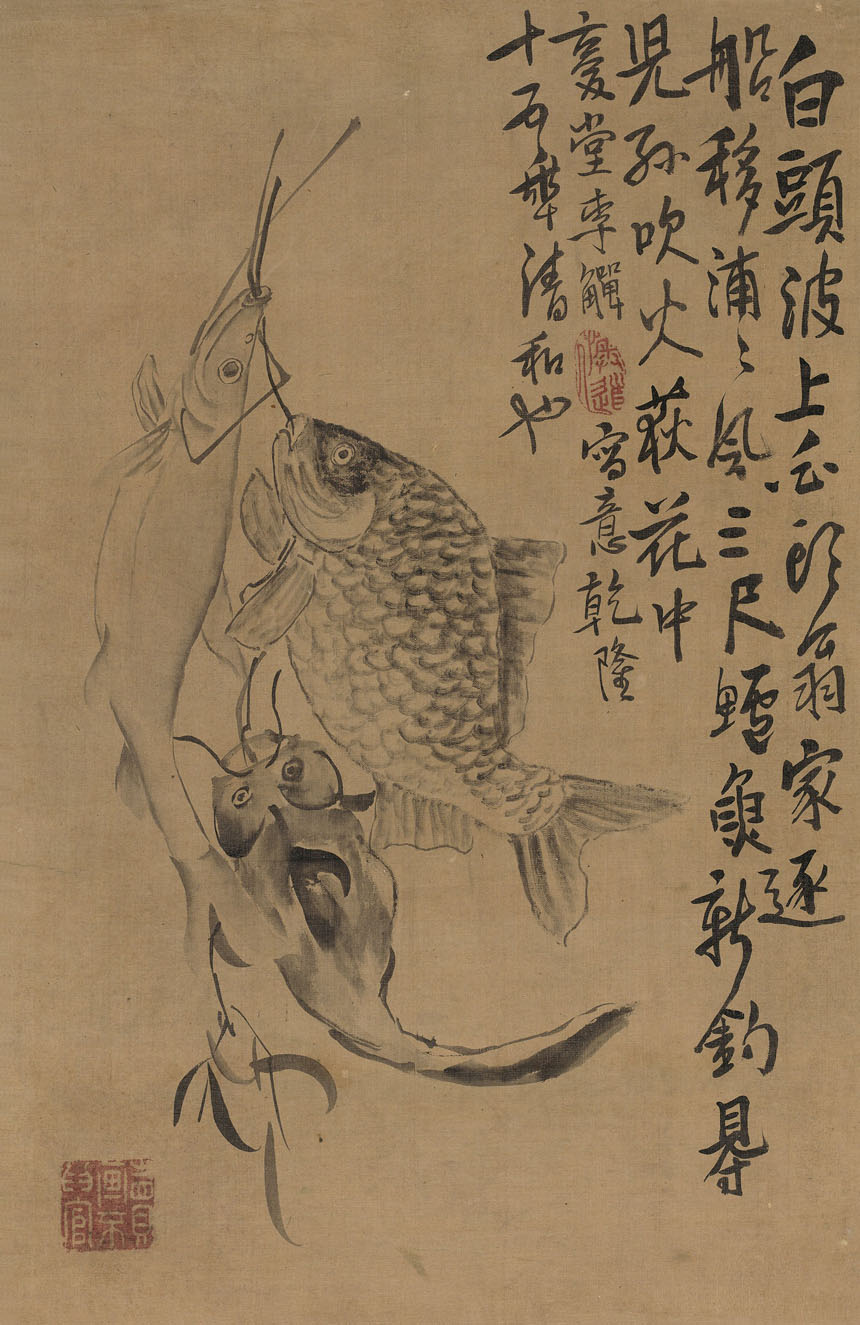 白頭波上白頭翁家逐
船移浦〻風三尺鱸魚新釣㝵
児孫吹火荻花中
复堂李鱓 寫意乾隆
十五年清和也